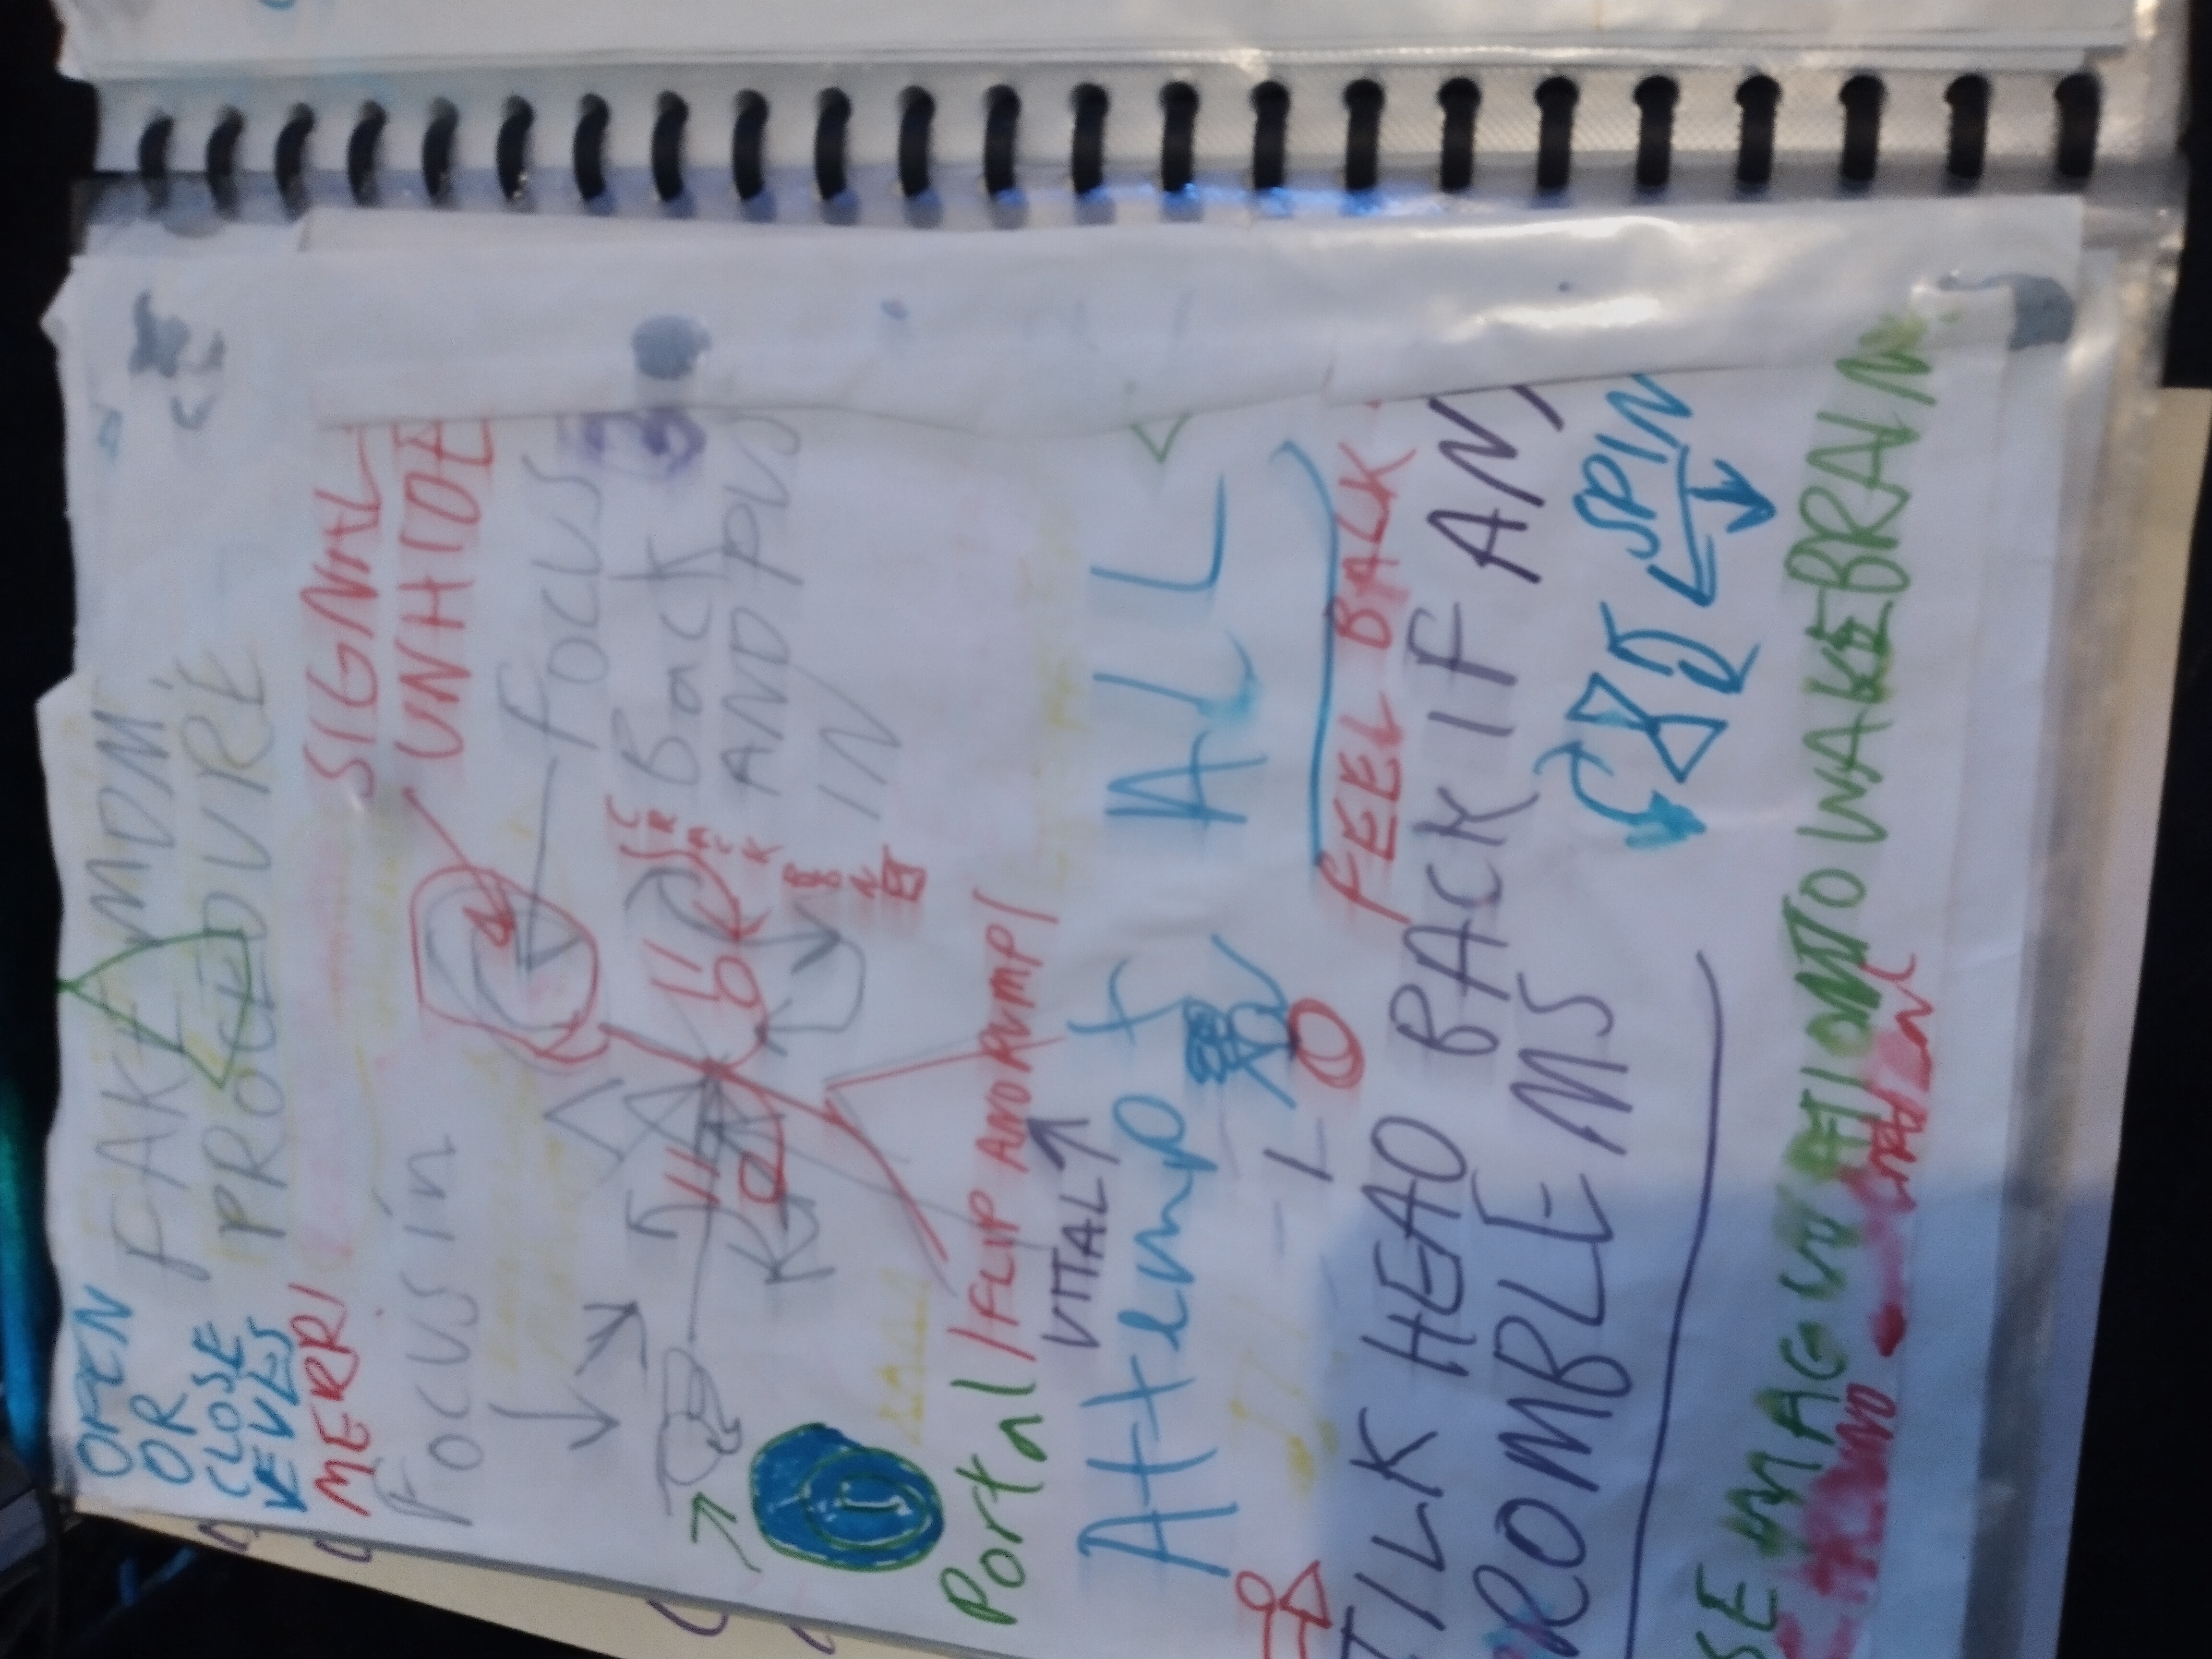 OPEN
OR
CLOSE
FAKE MDM
PROCEDURE
MERRI
SIGNAL
UNHIDE
FOCUS in
FOCUS
Back
AND PUS
IN
CRACK
Portal / FLIP AND RUMP /
VITAL
Attempt ALL
FEEL BALK
TILK HEAD BACK IF ANY
ROMBLEMS
SPIN
SE MAGINATION TO WAKE BRAIN